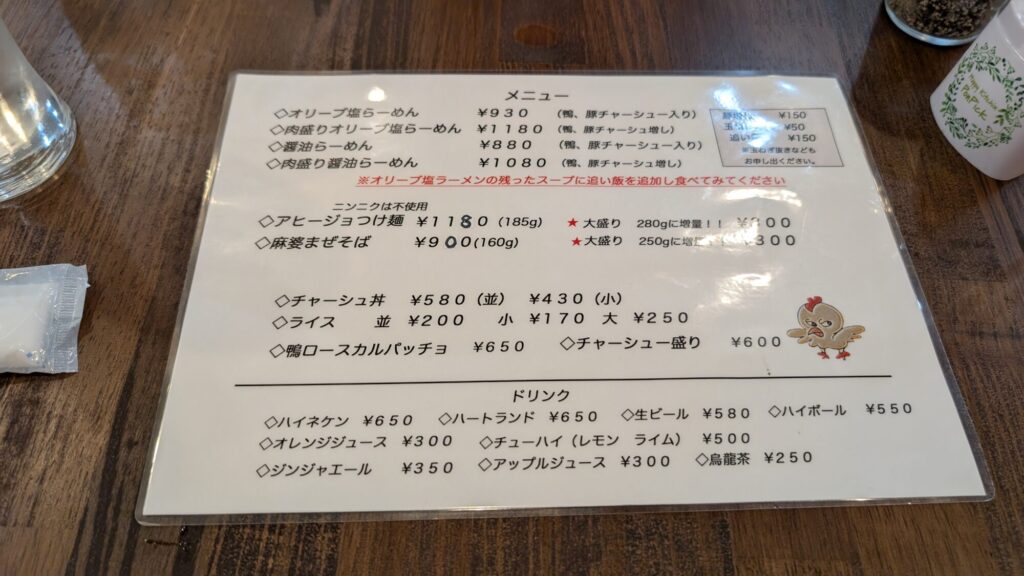 メニュー
◇オリーブ塩らーめん ¥930 (鴨、豚チャーシュー入り)
◇肉盛りオリーブ塩らーめん ¥1180 (鴨、豚チャーシュ増し)
◇醤油らーめん ¥880 (鴨、豚チャーシュー入り)
◇肉盛り醤油らーめん ¥1080 (鴨、豚チャーシュ増し)
¥150
¥50
追い ¥150
※玉ねぎ抜きなども
お申し出ください。
※オリーブ塩ラーメンの残ったスープに追い飯を追加し食べてみてください
ニンニクは不使用
◇アヒージョつけ麺 ¥1180 (185g) ★大盛り 280gに増量!!
◇麻婆まぜそば ¥900 (160g) ★大盛り 250gに増量!! ¥300
◇チャーシュ丼 ¥580 (並) ¥430 (小)
◇ライス 並 ¥200 小 ¥170 大 ¥250
◇鴨ロースカルパッチョ ¥650 ◇チャーシュー盛り ¥600
ドリンク
◇ハイネケン ¥650 ◇ハートランド ¥650 ◇生ビール ¥580 ◇ハイボール ¥550
◇オレンジジュース ¥300 ◇チューハイ (レモン ライム) ¥500
◇ジンジャエール ¥350 ◇アップルジュース ¥300 ◇烏龍茶 ¥250